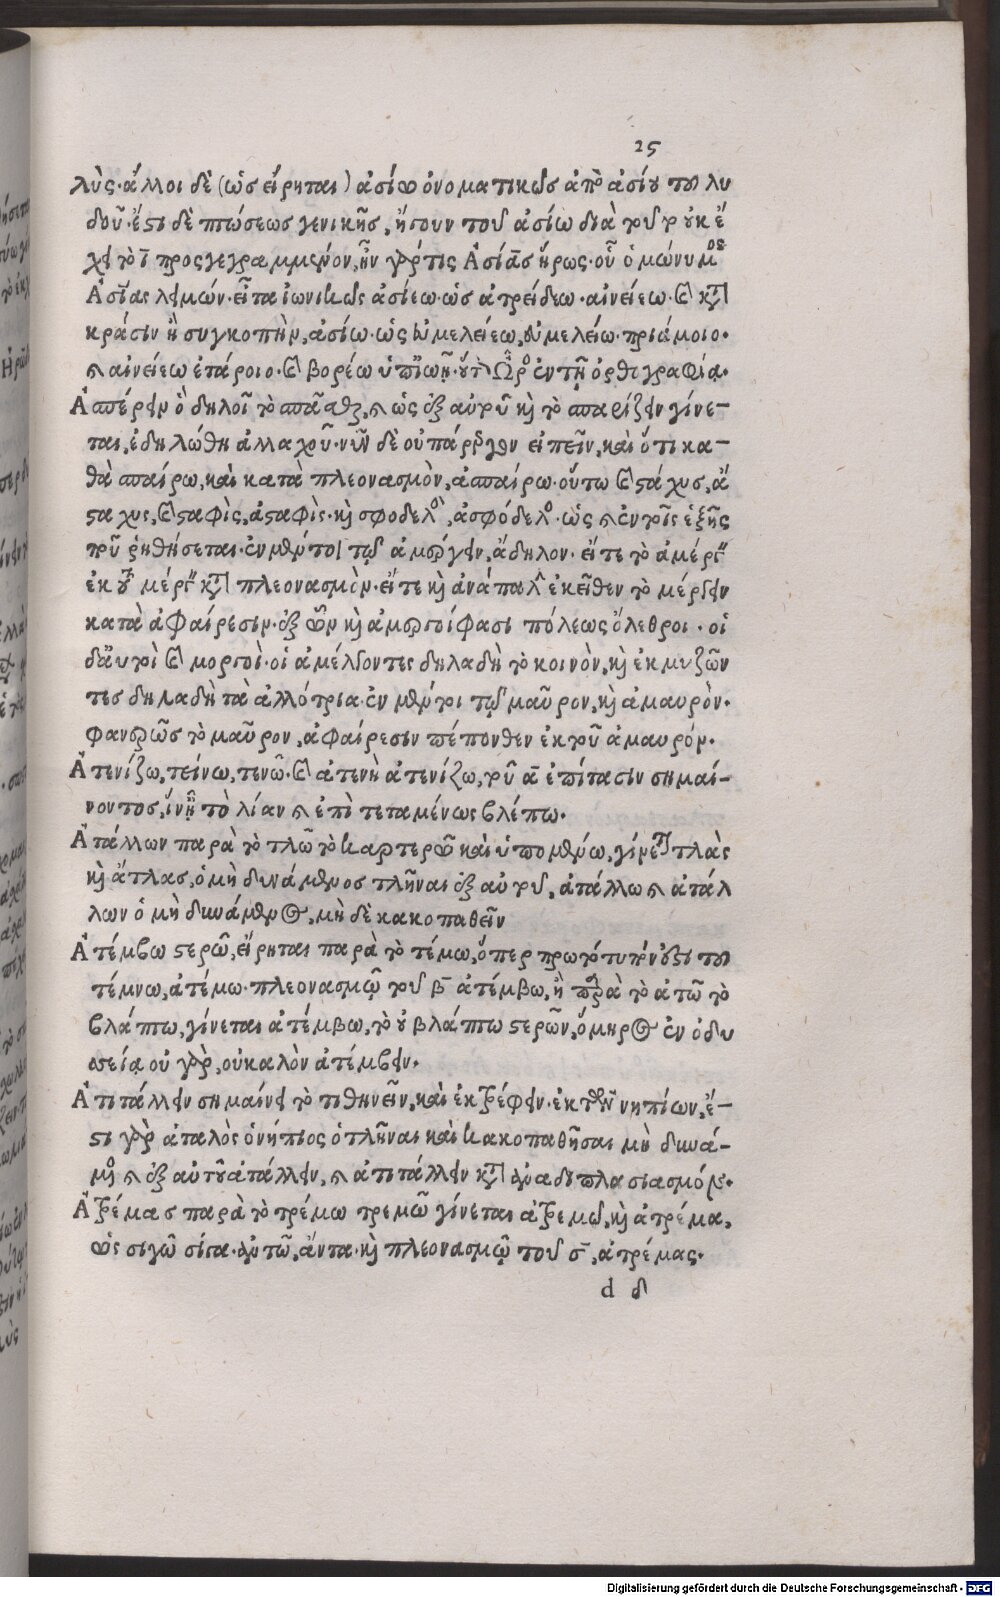 25
λὺς· ἄλλοι δὲ (ὡς εἴρηται) ἀσίω ὀνοματικῶς ἀπὸ ἀσίου τοῦ λυ
δοῦ· ἔστι δὲ πτώσεως γενικῆς, ἤγουν τοῦ ἀσίω διὰ τοῦτο οὐκ ἔ
χει τὸ ῑ προσγεγραμμένον, ἦν γάρ τις Ἀσίας ἥρως· οὗ ὁμώνυμος
Ἀσίας λειμών· εἶτα ἰωνικῶς ἀσίεω· ὡς ἀτρείδεω· αἰνείεω· καὶ κατὰ
κρᾶσιν ἢ συγκοπὴν, ἀσίω· ὡς εὐμελείεω, εὐμελείω· πριάμοιο·
καὶ αἰνείεω ἑτάροιο· καὶ βορέω ὑπ᾽ἰωῇ· οὕτως Ὦρος ἐν τῇ ὀρθογραφίᾳ·
Ἀσπαίρειν ὃ δηλοῖ τὸ σπᾶσθαι, καὶ ὡς ἐξ αὐτοῦ καὶ τὸ σπαρίζειν γίνε-
ται, ἐδηλώθη ἀλλαχοῦ· νῦν δὲ οὐ πάρεργον εἰπεῖν, καὶ ὅτι κα-
θὰ σπαίρω, καὶ κατὰ πλεονασμὸν, ἀσπαίρω· οὕτω καὶ στάχυς, ἄ
σταχυς, καὶ σταφὶς, ἀσταφὶς· καὶ σφοδελὸς, ἀσφόδελος· ὡς καὶ ἐν τοῖς ἑξῆς
που ῥηθήσεται· ἐν μέντοι τῷ ἀμέργειν, ἄδηλον· εἴτε τὸ ἀμέργειν
ἐκ τοῦ μέργειν κατὰ πλεονασμὸν· εἴτε καὶ ἀνάπαλιν ἐκεῖθεν τὸ μέργειν
κατὰ ἀφαίρεσιν· ἐξ ὧν καὶ ἀμοργοί φασι πόλεως ὄλεθροι· οἱ
δ᾽αὐτοὶ καὶ μοργοὶ· οἱ ἀμέλγοντες δηλαδὴ τὸ κοινὸν, καὶ ἐκμυζῶν
τες δηλαδὴ τὰ ἀλλότρια· ἐν μέντοι τῷ μαῦρον, καὶ ἀμαυρὸν·
φανερῶς τὸ μαῦρον, ἀφαίρεσιν πέπονθεν ἐκ τοῦ ἀμαυρόν·
Ἀτενίζω, τείνω, τενῶ· καὶ ἀτενὴ ἀτενίζω, τοῦ ᾱ ἐπίτασιν σημαί-
νοντος, ἵν᾽ᾖ τὸ λίαν καὶ ἐπὶ τεταμένως βλέπω·
Ἀτάλλων παρὰ τὸ τλῶ τὸ καρτερῶ καὶ ὑπομένω, γίνεται τλὰς
καὶ ἄτλας, ὁ μὴ δυνάμενος τλῆναι· ἐξ αὐτοῦ, ἀτάλλω καὶ ἀτάλ
λων ὁ μὴ δυνάμενος, μὴ δὲ κακοπαθεῖν
Ἀτέμβω στερῶ, εἴρηται παρὰ τὸ τέμω, ὅπερ πρωτότυπόν ἐστι τοῦ
τέμνω, ἀτέμω· πλεονασμῷ τοῦ β̄ ἀτέμβω, ἢ παρὰ τὸ ἀτῶ τὸ
βλάπτω, γίνεται ἀτέμβω, τὸ οὐ βλάπτω στερῶν, ὅμηρος ἐν ὀδυ
σσείᾳ οὐ γὰρ, οὐ καλὸν ἀτέμβειν·
Ἀτιτάλλειν σημαίνει τὸ τιθηνεῖν, καὶ ἐκτρέφειν· ἐκ τῶν νηπίων, ἔ-
στι γὰρ ἀταλὸς ὁ νήπιος ὁ τλῆναι καὶ κακοπαθῆσαι μὴ δυνά-
μενος καὶ ἐξ αὐτοῦ ἀτάλλειν, καὶ ἀτιτάλλειν κατὰ ἀναδιπλασιασμόν·
Ἀτρέμας παρὰ τὸ τρέμω τρεμῶ γίνεται ἀτρεμῶ, καὶ ἀτρέμα,
ὡς σιγῶ σίγα· ἀντῶ, ἄντα· καὶ πλεονασμῷ τοῦ σ̄, ἀτρέμας·
d δ
Digitalisierung gefördert durch die Deutsche Forschungsgemeinschaft - DFG